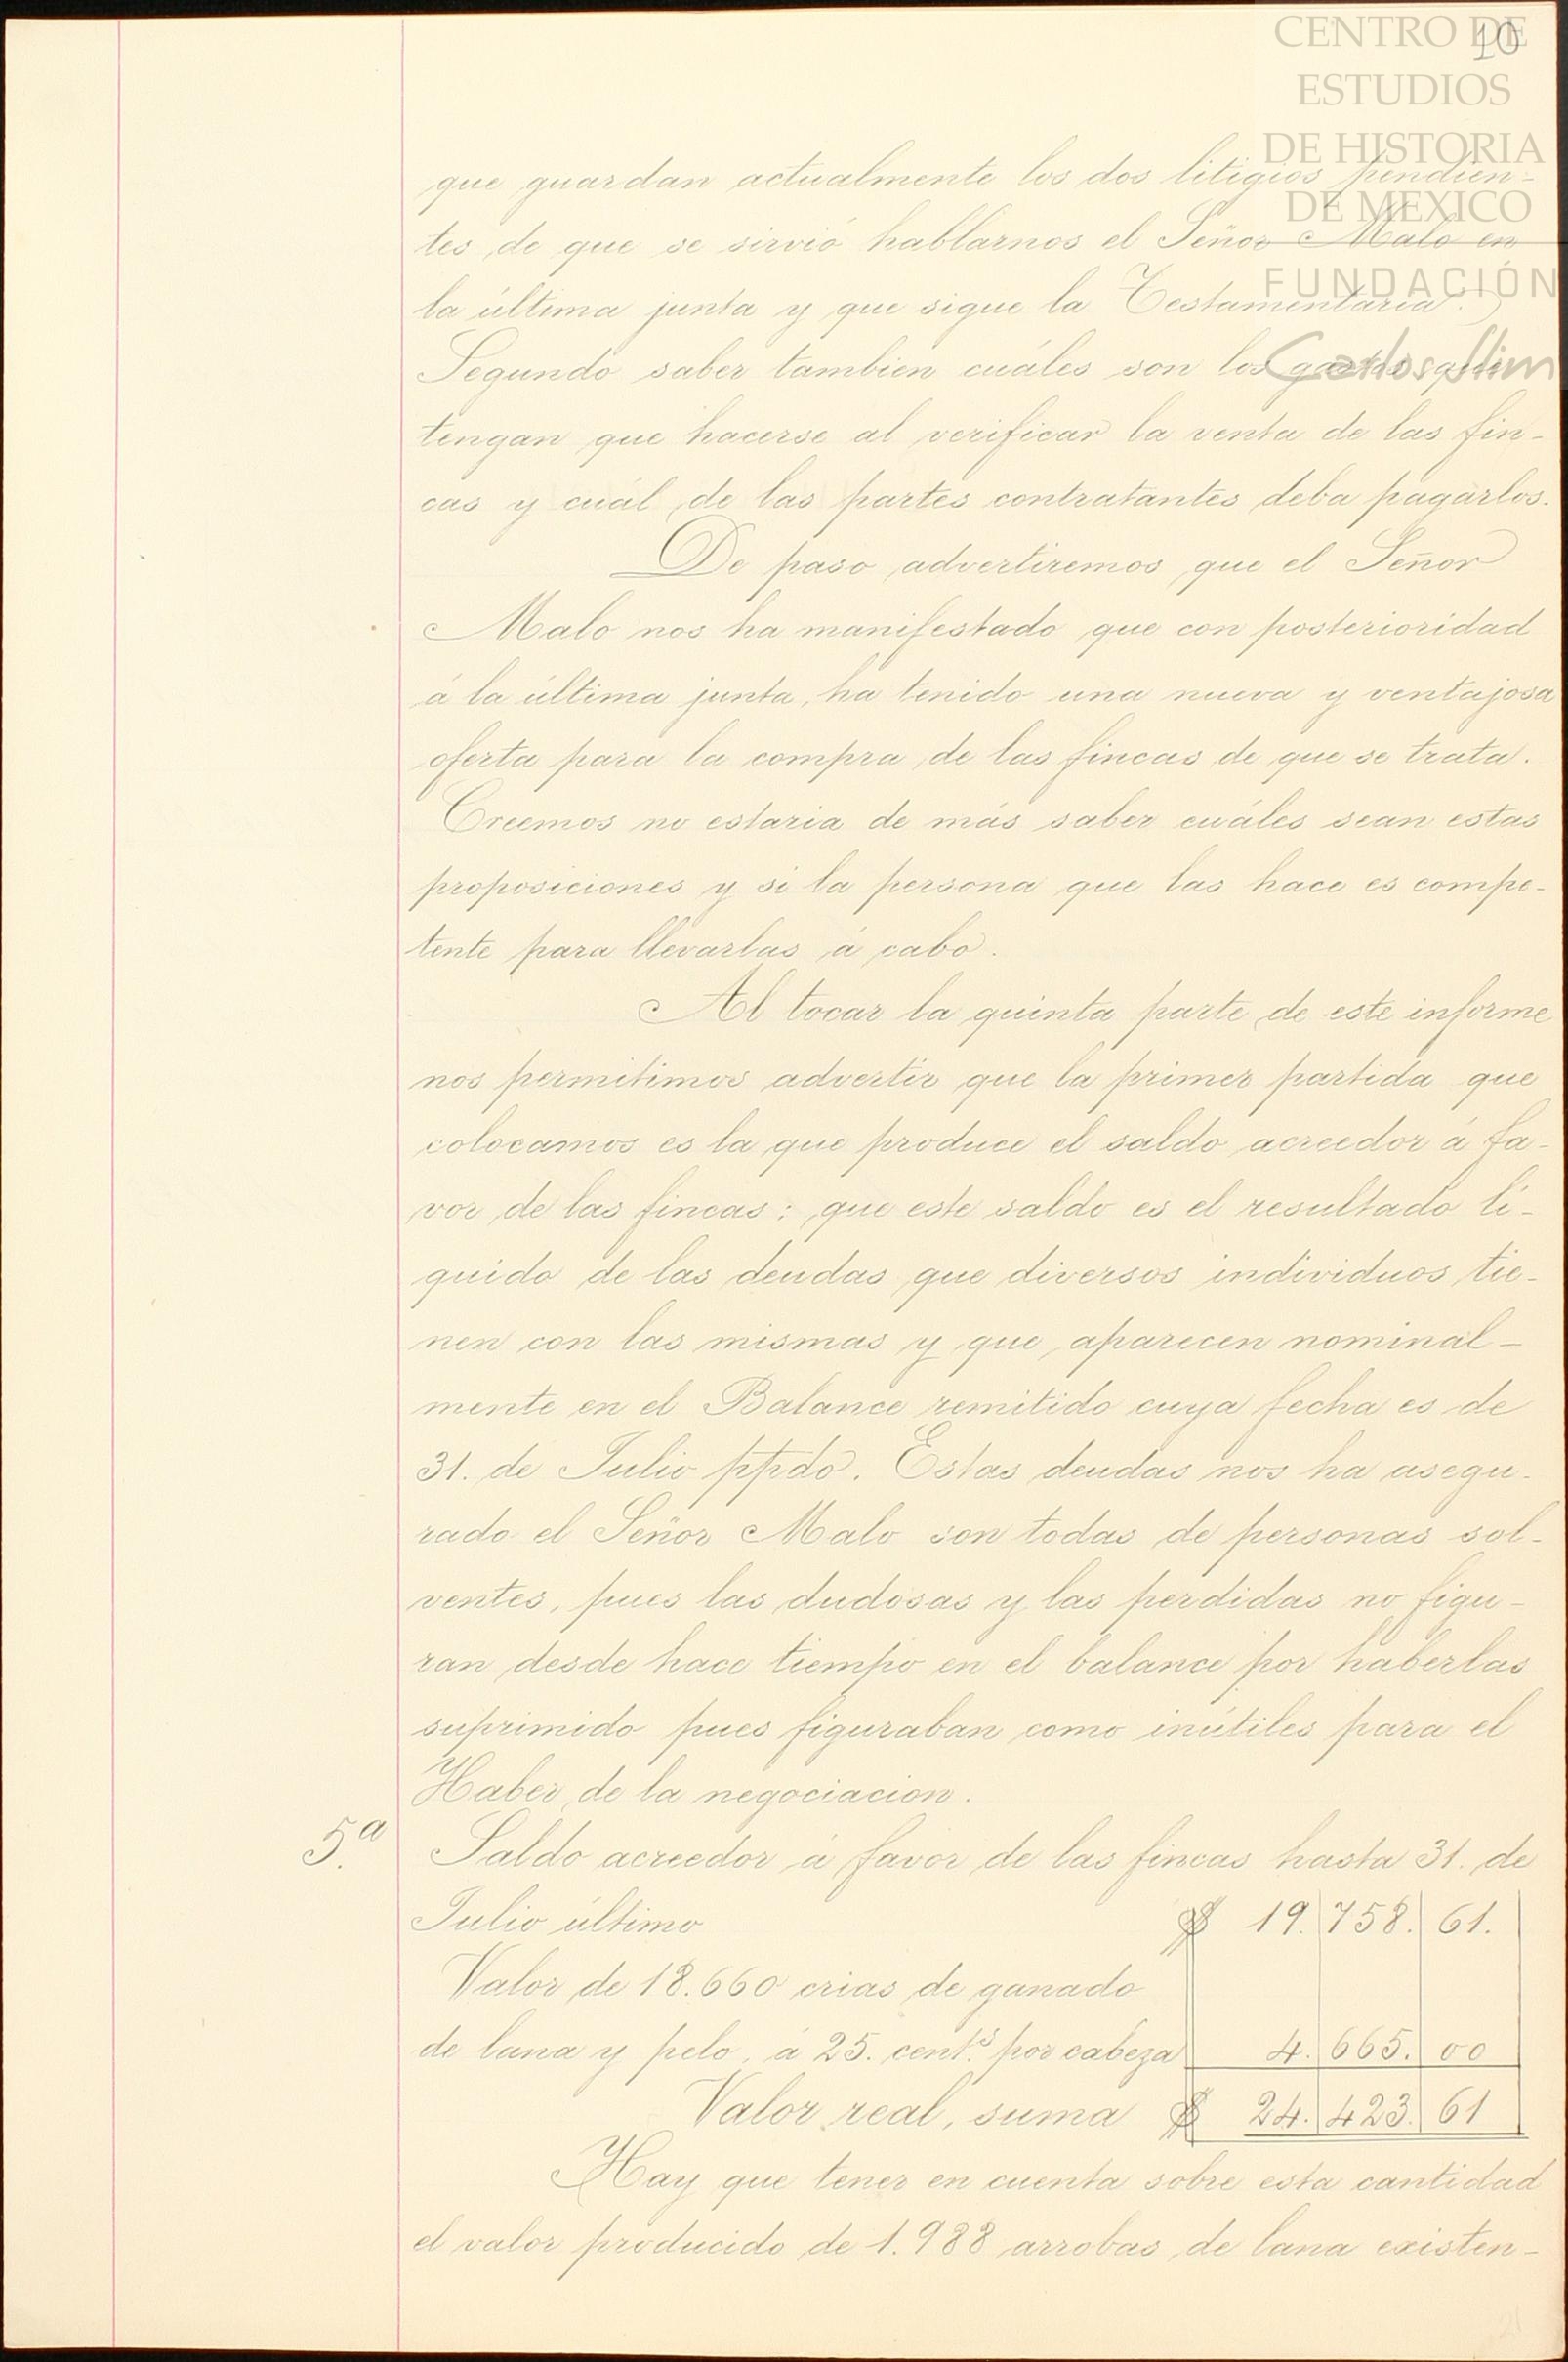 CENTRO DE
ESTUDIOS
DE HISTORIA
DE MEXICO
FUNDACIÓN
Carlos Slim
10
que guardan actualmente los dos litigios pendien-
tes de que se sirvió hablarnos el Señor Malo en
la última junta y que sigue la Testamentaría.
Segundo saber tambien cuáles son los gastos que
tengan que hacerse al verificar la venta de las fin-
cas y cuál de las partes contratantes deba pagarlos.
De paso advertiremos que el Señor
Malo nos ha manifestado que con posterioridad
á la última junta, ha tenido una nueva y ventajosa
oferta para la compra de las fincas de que se trata.
Creemos no estaria de más saber cuáles sean estas
proposiciones y si la persona que las hace es compe-
tente para llevarlas á cabo.
Al tocar la quinta parte de este informe
nos permitimos advertir que la primer partida que
colocamos es la que produce el saldo acreedor á fa-
vor de las fincas: que este saldo es el resultado lí-
quido de las deudas que diversos individuos tie-
nen con las mismas y que aparecen nominal-
mente en el Balance remitido cuya fecha es de
31. de Julio ppdo. Estas deudas nos ha asegu-
rado el Señor Malo son todas de personas sol-
ventes, pues las dudosas y las perdidas no figu-
ran desde hace tiempo en el balance por haberlas
suprimido pues figuraban como inútiles para el
Haber de la negociacion.
5.ª Saldo acreedor á favor de las fincas hasta 31. de
Julio último $ 19.758.61.
Valor de 18.660 crias de ganado
de lana y pelo, á 25. cent.s por cabeza 4.665.00
Valor real, suma $ 24.423.61
Hay que tener en cuenta sobre esta cantidad
el valor producido de 1.988 arrobas de lana existen-